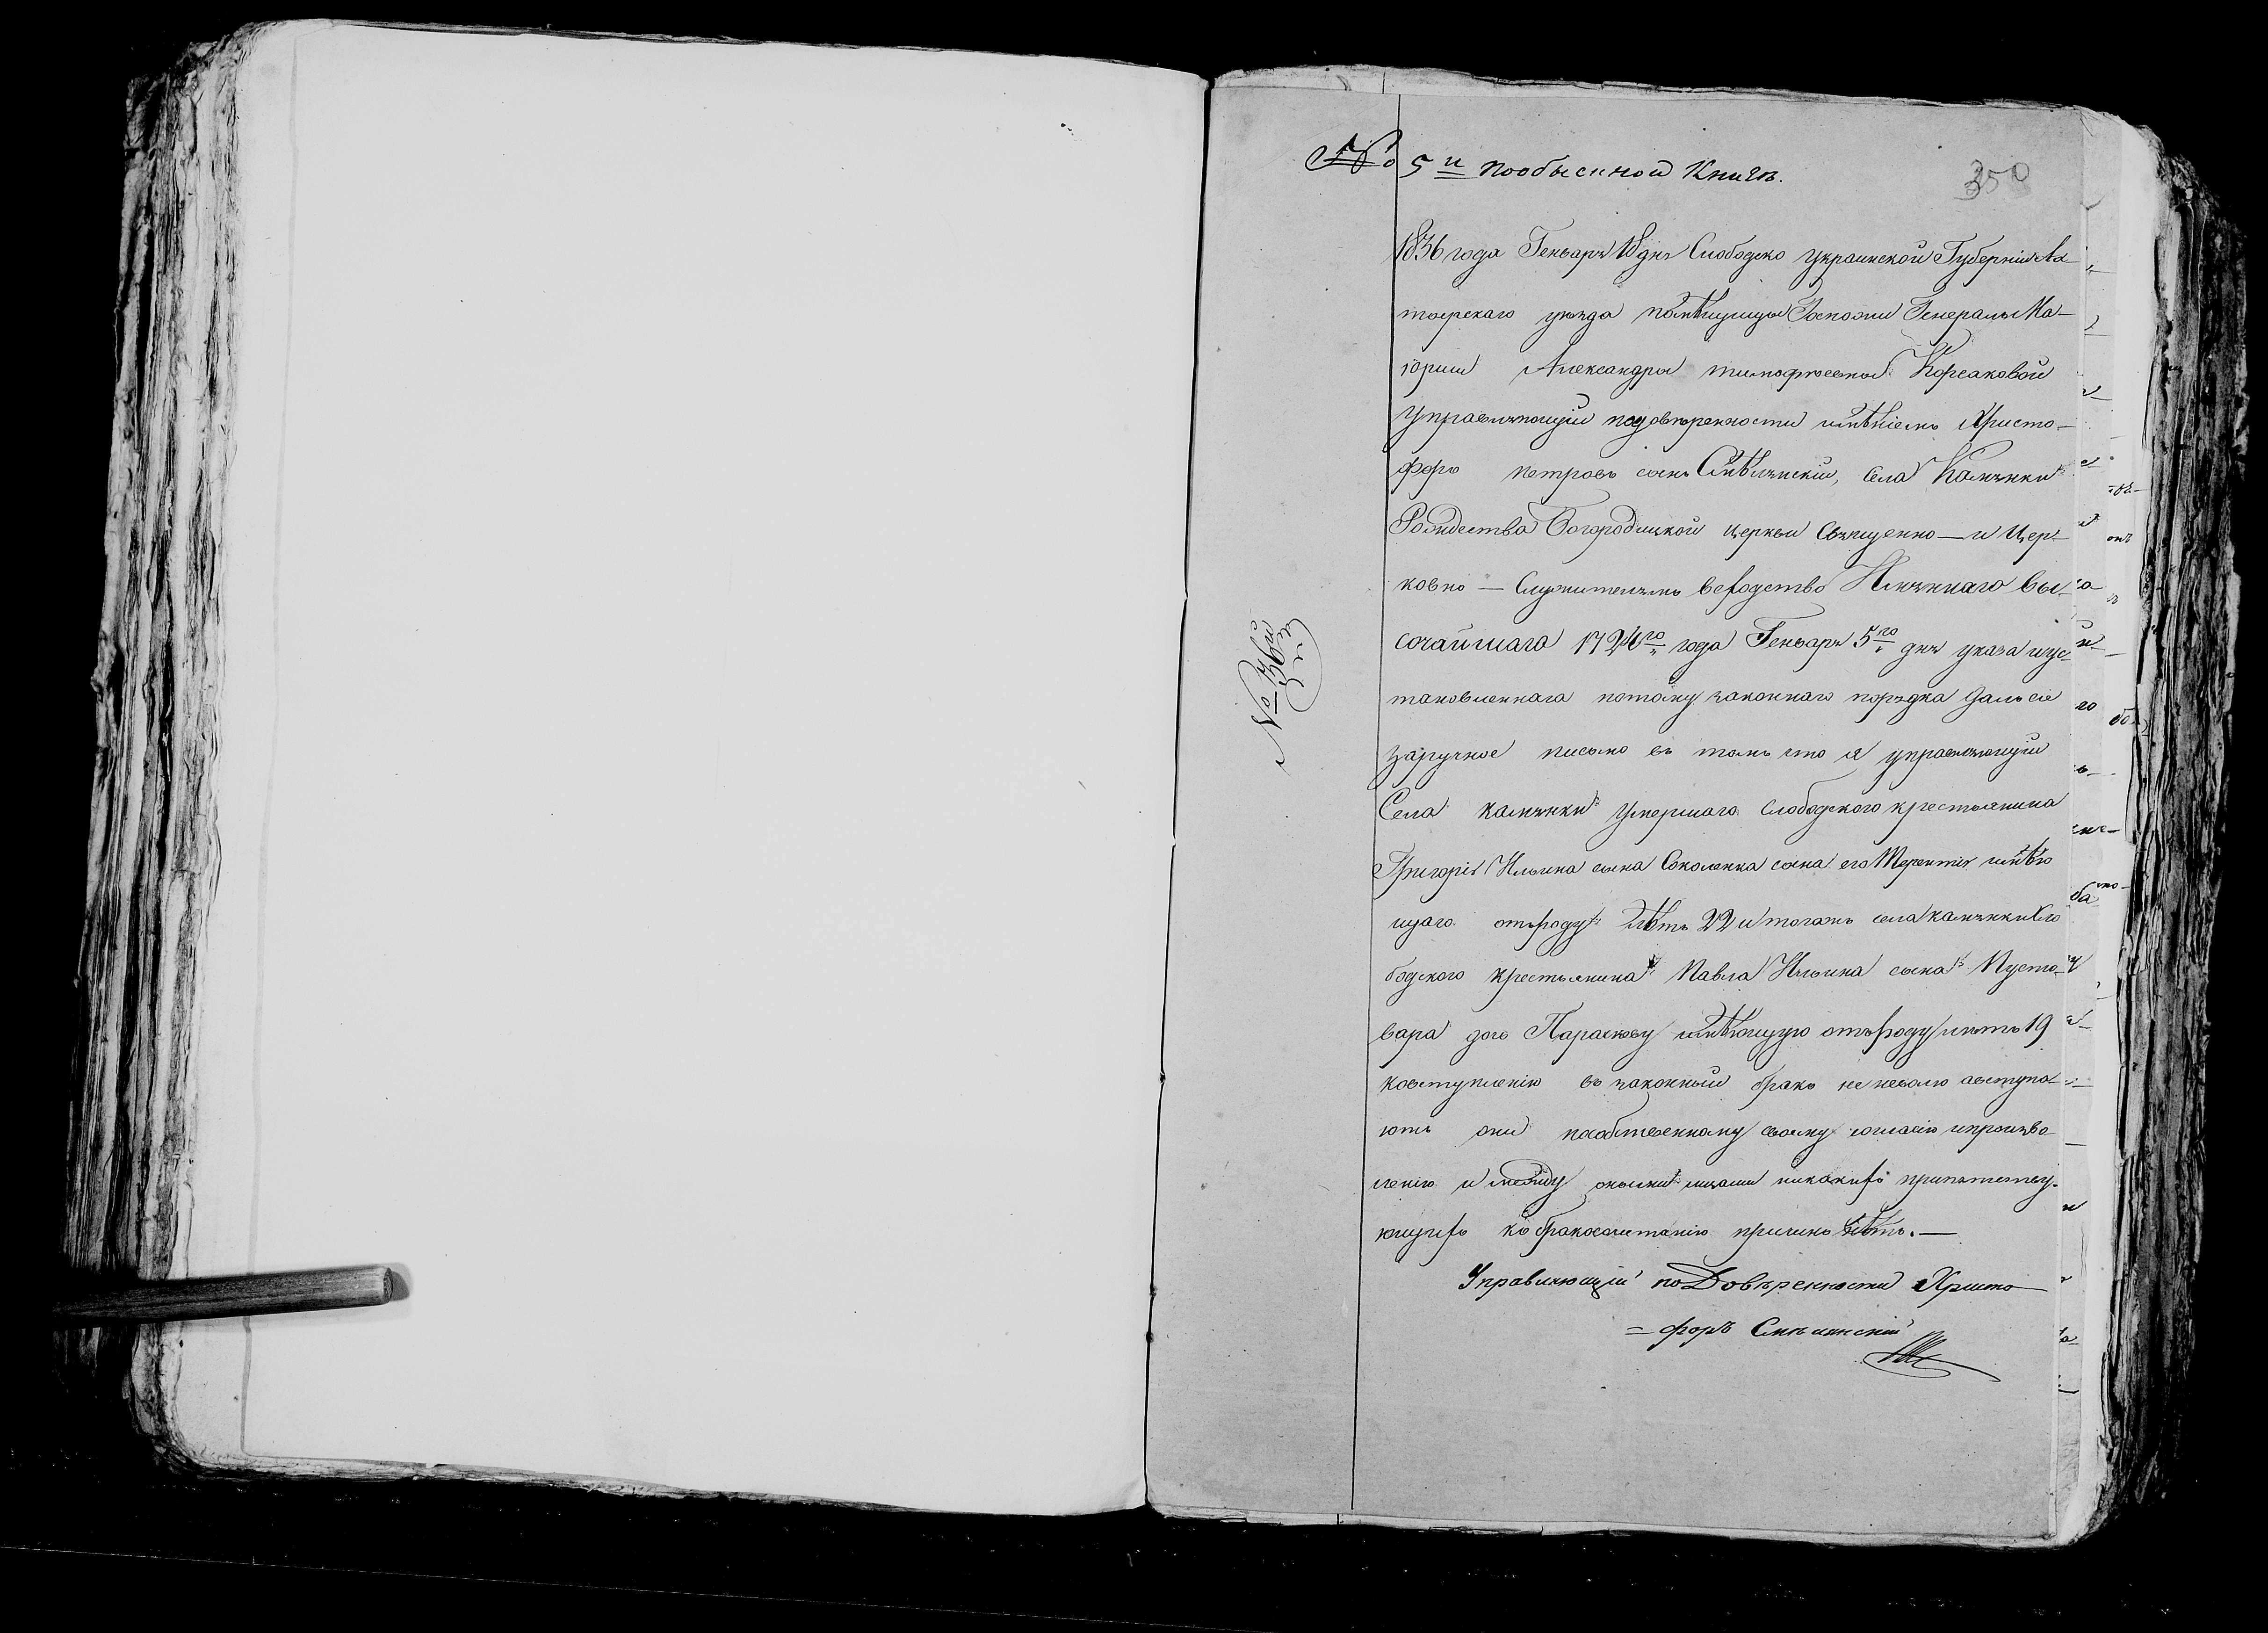 № 5й пообыскной Книгѣ.
350
1836 года Генваря 18 дня Слободско Украинской Губерніи Ах
тырскаго уѣзда помѣщицы Госпожи Генералъ Ма-
іорши Александры тимофѣевны Корсаковой
Управляющій подовѣренности имѣніемъ Христо-
форъ петровъ сынъ Смѣлянскій, Села Камянки
Рождества Богородицкой церкви Священно — и Цер-
ковно — Служителямъ веходство Имяннаго Вы-
сочайшаго 1724го года Генваря 5го дня указа иус-
тановленнаго потому законнаго порядка Далъ сіе
заручное письмо въ томъ что я управляющій
Села камянки Умершаго Слободского крестьянина
Григорія Ильина сына Соколенка сына его Терентія имѣю
щаго отъроду лѣтъ 22 и тогожъ села камянки Сло
бодского крестьянина Павла Ильина сына Пусто-
вара дочь Параскеву имѣющую отъроду лѣтъ 19
ковступленію въ законный бракъ не неволю авступа-
ютъ они пособственному своему согласію ипроизво
ленію и между оными лицами никакихъ препятству-
ющихъ къ бракосочитанію причинъ нѣтъ. —
Управляющій по Довѣренности Христо
= форъ Смѣлянскій